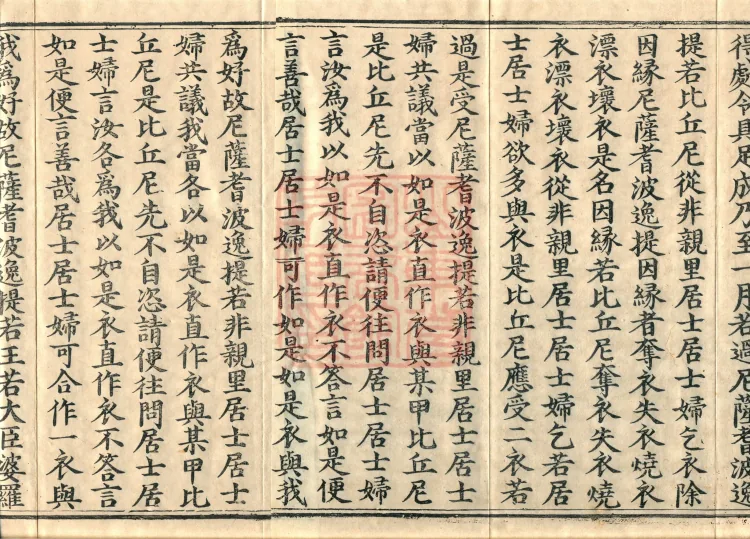 得處令具足成乃至一月若過尼薩耆波逸
提若比丘尼從非親里居士居士婦乞衣除
因緣尼薩耆波逸提因緣者奪衣失衣燒衣
漂衣壞衣是名因緣若比丘尼奪衣失衣燒
衣漂衣壞衣從非親里居士居士婦乞若居
士居士婦欲多與衣是比丘尼應受二衣若
過是受尼薩耆波逸提若非親里居士居士
婦共議當以如是衣直作衣與某甲比丘尼
是比丘尼先不自恣請便往問居士居士婦
言汝爲我以如是衣直作衣不答言如是便
言善哉居士居士婦可作如是如是衣與我
爲好故尼薩耆波逸提若非親里居士居士
婦共議我當各以如是衣直作衣與某甲比
丘尼是比丘尼先不自恣請便往問居士居
士婦言汝各爲我以如是衣直作衣不答言
如是便言善哉居士居士婦可合作一衣與
我爲好故尼薩耆波逸提若王若大臣婆羅